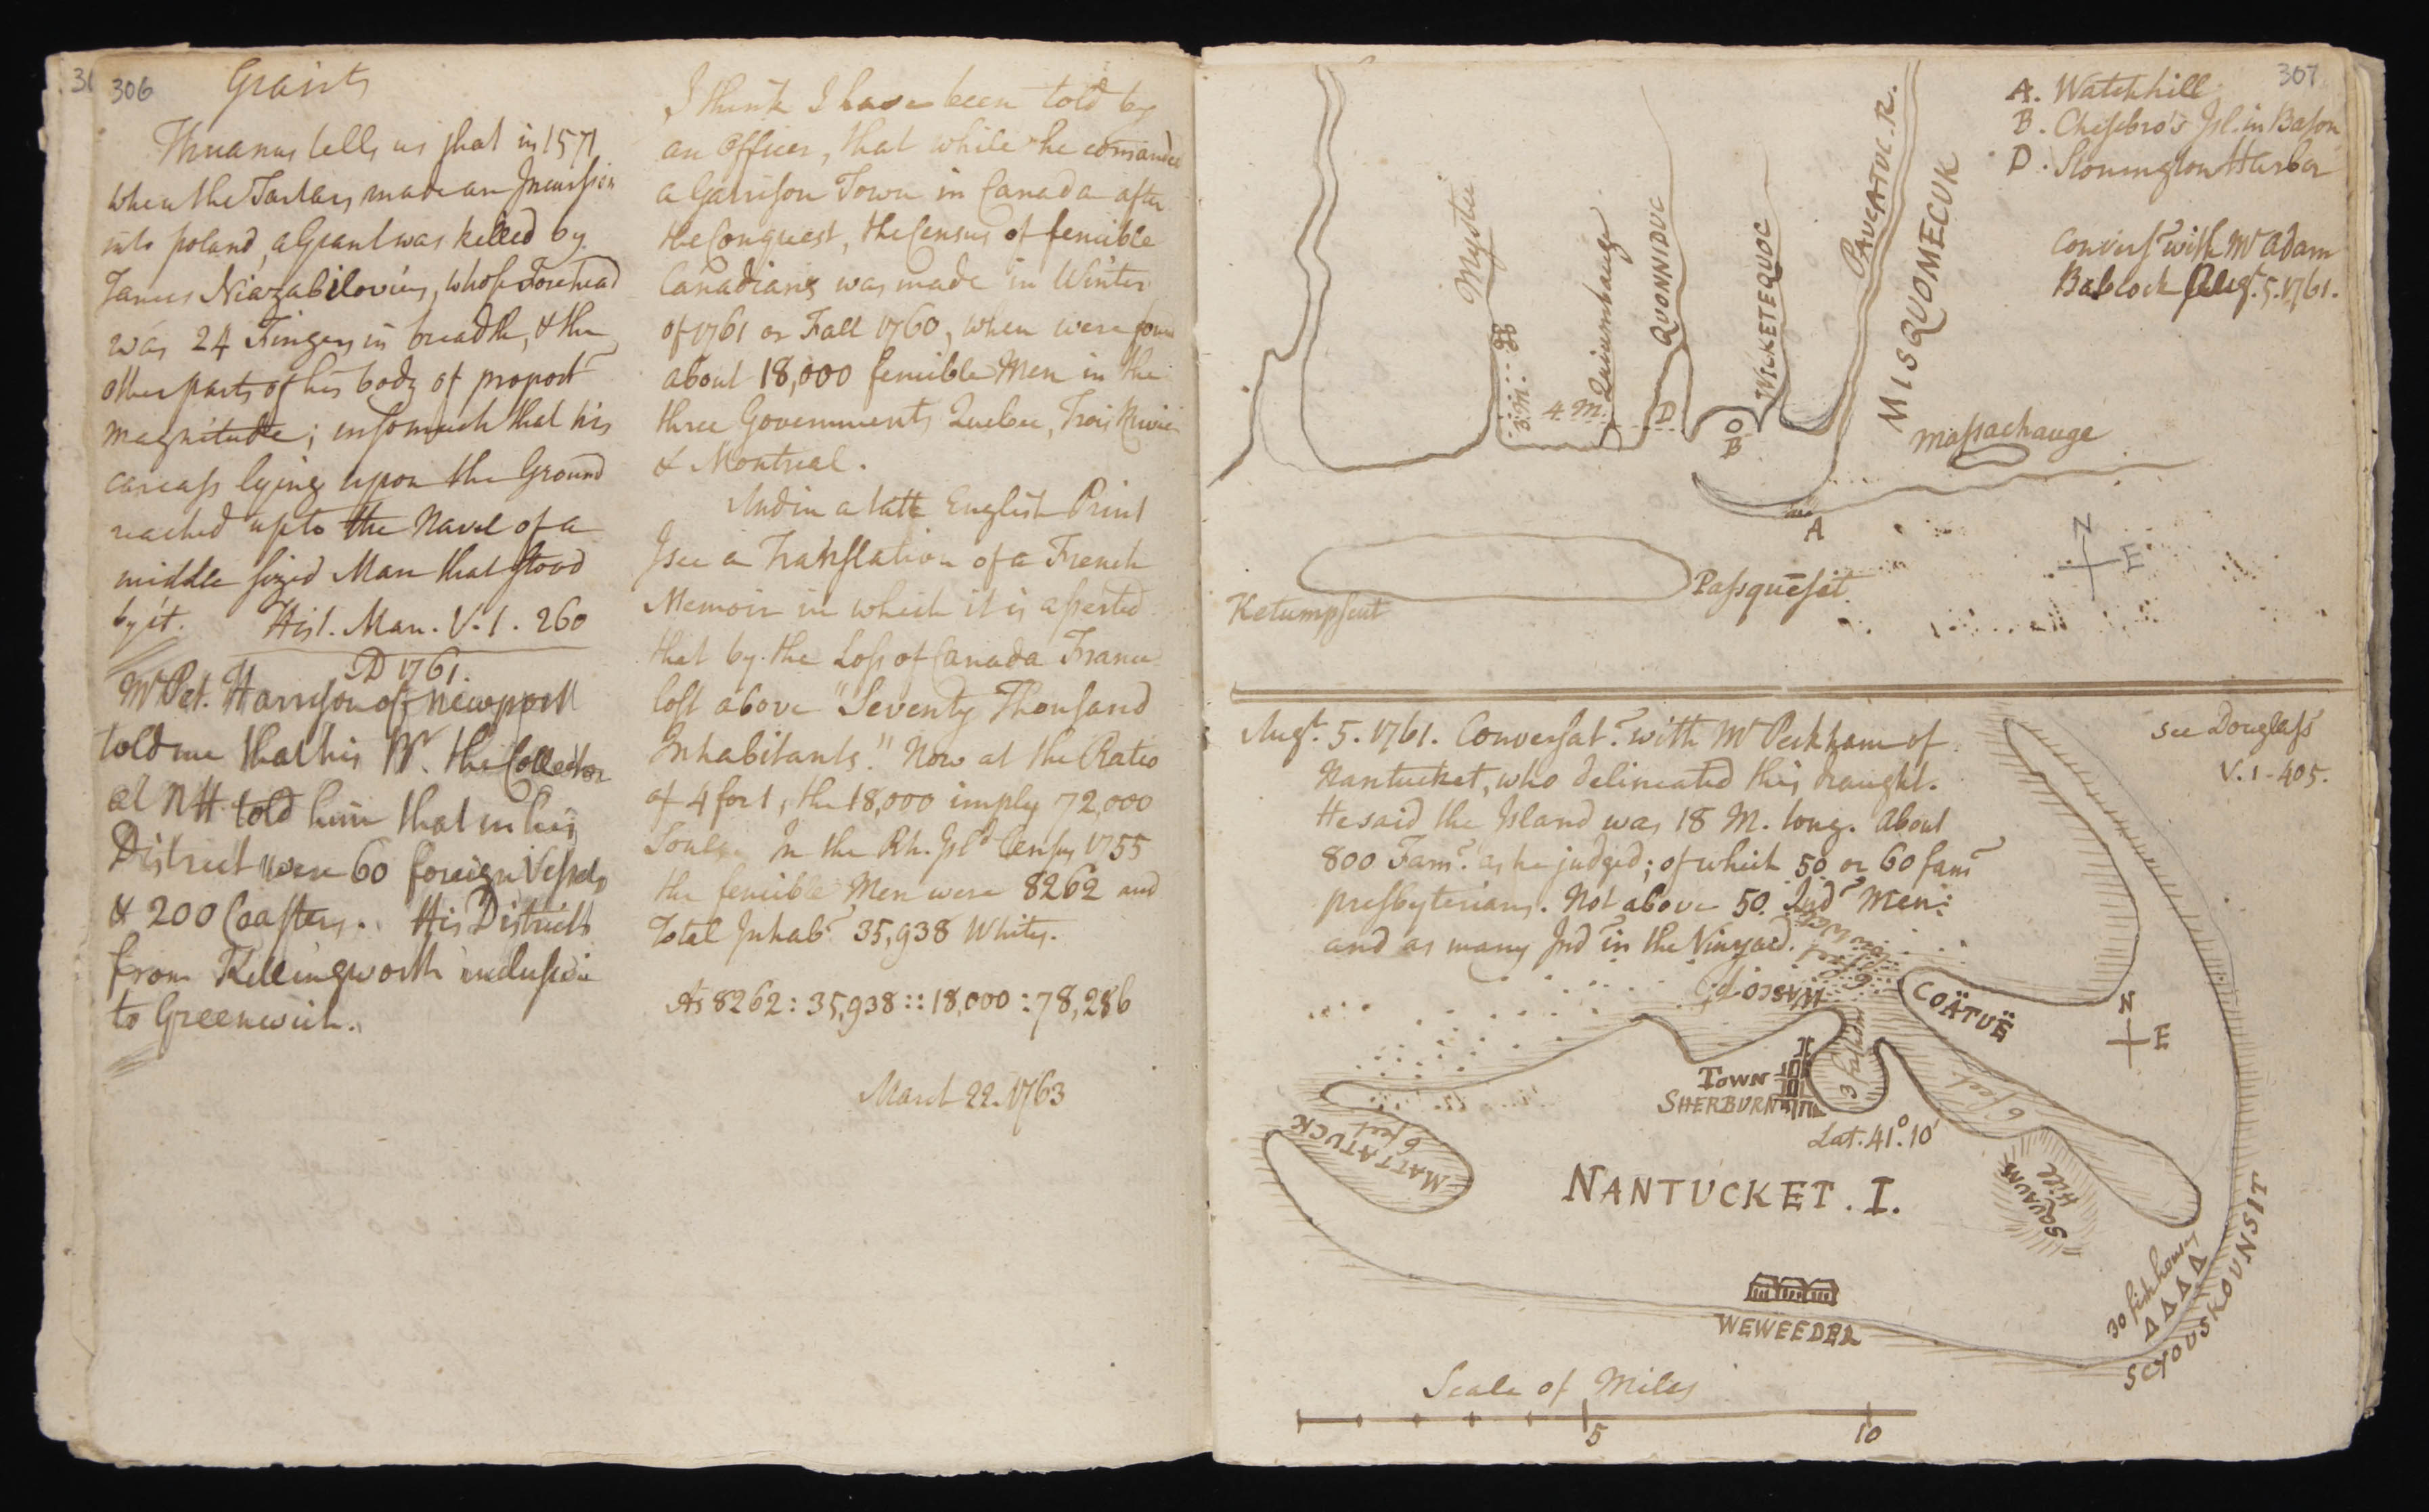 306
Giants
Thuanus tells us that in 1571
when the Tartars made an Incursion
into Poland, a Giant was killed by
James Niazabilovius, whose Forehead
was 24 Fingers in breadth, & the
other parts of his body of proport
magnitude; insomuch that his
carcass lying upon the Ground
reached up to the Navel of a
middle sized Man that stood
by it. Hist. Man. V. 1. 260
D 1761.
Mr Pet. Harrison of Newport
told me that his Br. the Collector
at NH told him that in his
District were 60 foreign Vessels
& 200 Coasters. His District
from Killingworth inclusive
to Greenwich.
I think I have been told by
an Officer, that while he comanded
a Garrison Town in Canada after
the Conquest, the Census of fencible
Canadians was made in Winter
of 1761 or Fall 1760, when were found
about 18,000 fencible Men in the
three Governments Quebec, Trois Rivier
& Montreal.
And in a late English Print
I see a Translation of a French
Memoir in which it is asserted
that by the Loss of Canada France
lost above "Seventy Thousand
Inhabitants." Now at the Ratio
of 4 for 1, the 18,000 imply 72,000
Souls. In the Rh. Isld Census 1755
the fencible Men were 8262 and
Total Inhab. 35,938 Whites.
As 8262 : 35,938 :: 18,000 : 78,286
March 22. 1763
307
A. Watchhill
B. Chesebro's Isl. in Bason
D. Stonington Harbor
Convers. with Mr Adam
Babcock Augt. 5. 1761.
Mystic
3. M.
4. M.
Quiumbauge
QUONNIDUC
D
WICKETEQUOC
B
PAUCATUC. R.
MISQUOMECUK
Massachauge
A
N
E
Ketumpscut
Passquesit
Augt. 5. 1761. Conversat. with Mr Peckham of
Nantucket, who delineated this draught.
He said the Island was 18 M. long. About
800 Fam. as he judged; of which 50 or 60 fam
presbyterians. Not above 50. Ind Men:
and as many Ind in the Vinyard.
see Douglass
V. 1 - 405.
COÄTUË
N
E
3 fathom
TOWN
SHERBURN
Lat. 41°. 10'
6 feet
MATTATUCK
6 feet
SQUAUM
Hill
NANTUCKET. I.
30 fish houses
SCYOUSKOUNSIT
WEWEEDER
Scale of Miles
5
10